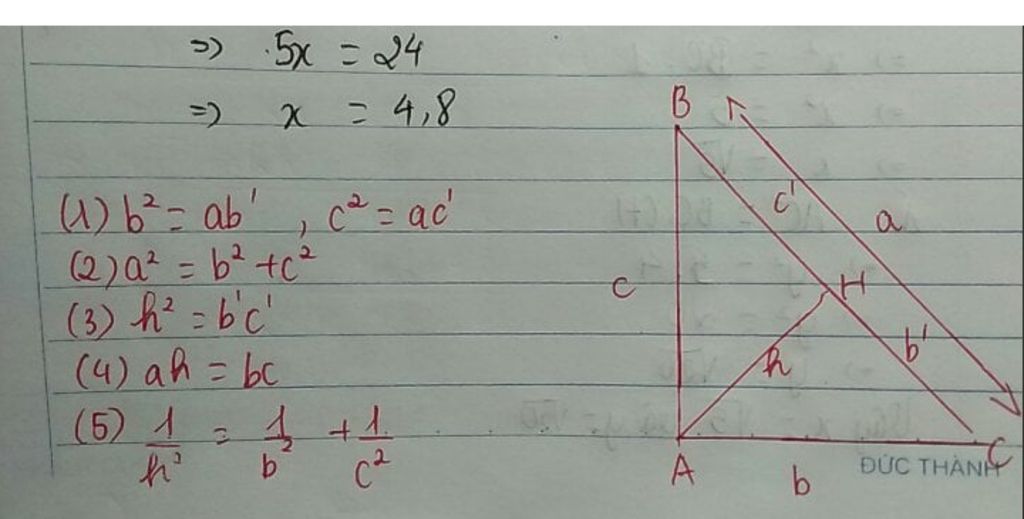 => 5x = 24
=> x = 4,8
(1) b² = ab' , c² = ac'
(2) a² = b² + c²
(3) h² = b'c'
(4) ah = bc
(5) 1/h² = 1/b² + 1/c²
B
c'
a
c
H
h
b'
A
b
C
ĐỨC THÀNH